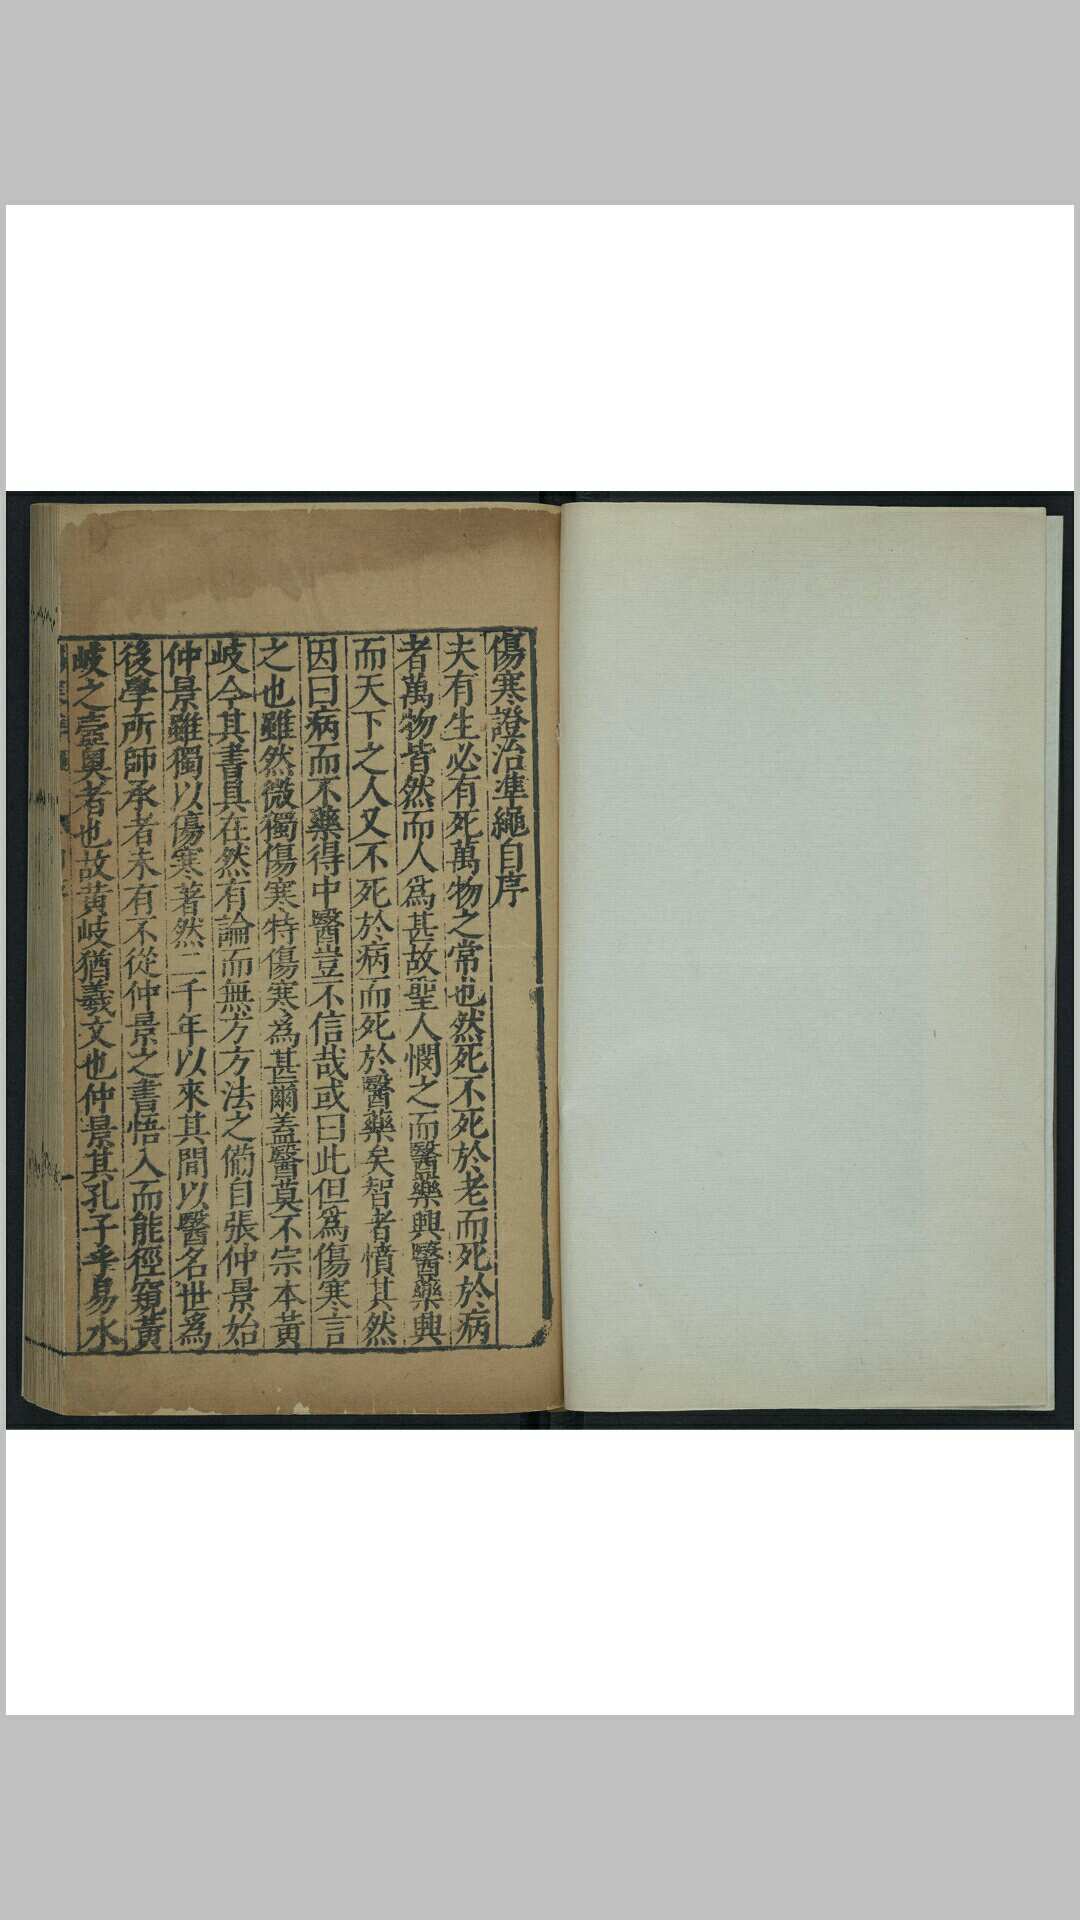 傷寒證治準繩自序
夫有生必有死萬物之常也然死不死於老而死於病
者萬物皆然而人爲甚故聖人憫之而醫藥興醫藥興
而天下之人又不死於病而死於醫藥矣智者憤其然
因曰病而不藥得中醫豈不信哉或曰此但爲傷寒言
之也雖然微獨傷寒特傷寒爲甚爾蓋醫莫不宗本黃
岐今其書具在然有論而無方方法之僃自張仲景始
仲景雖獨以傷寒著然二千年以來其間以醫名世爲
後學所師承者未有不從仲景之書悟入而能徑窺黃
岐之壼奧者也故黃岐猶羲文也仲景其孔子乎易水